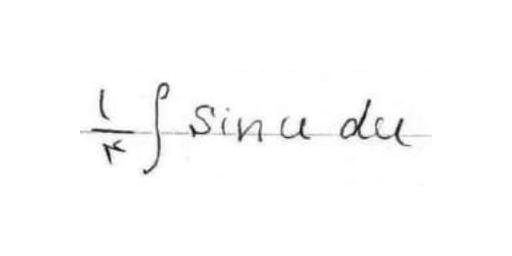 1/π ∫ sin u du